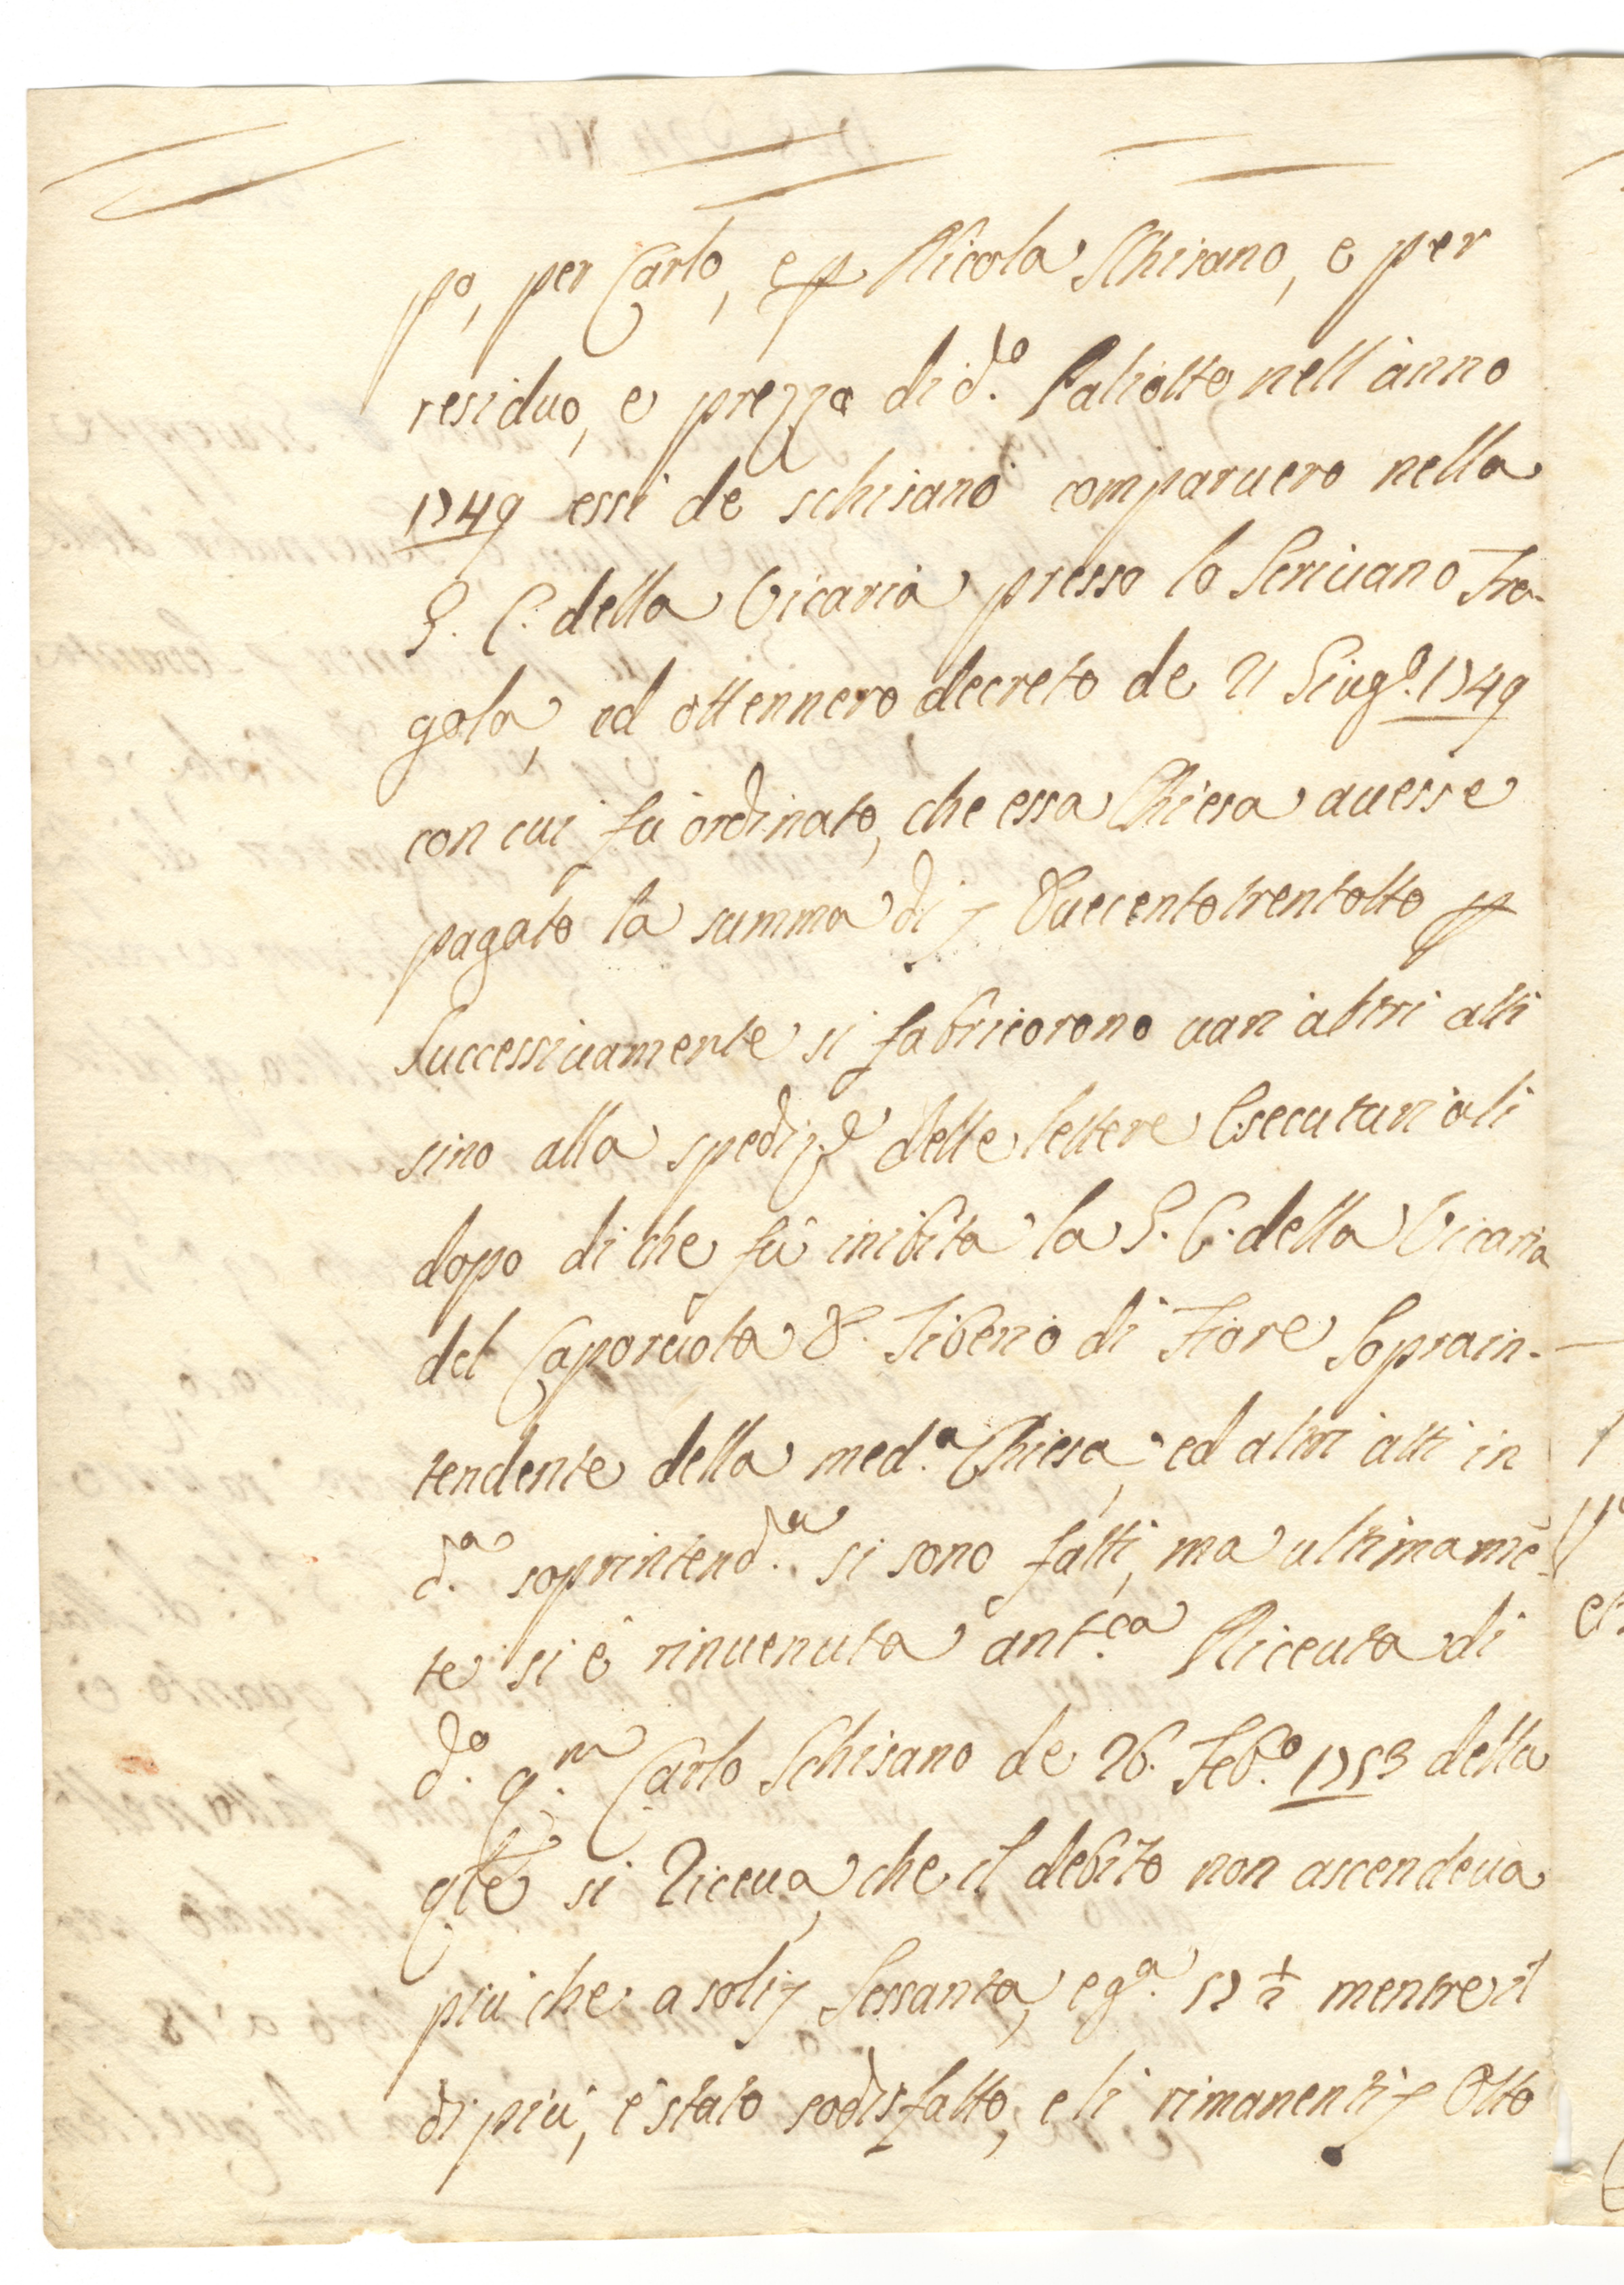 po, per Carlo, e p Nicola Schisano, e per
residuo, e prezzo di d.o Paliotto nell'anno
1749 essi de Schisano comparuero nella
G. C. della Vicaria presso lo Scriuano Fra-
gola, ed ottennero decreto de 21 Giug.o 1749
con cui fù ordinato, che essa Chiesa auesse
pagato la summa di Duecentotrentotto p
Successiuamente si fabricorono uarj altri atti
sino alla spediz.e delle lettere Esecutoriali
dopo di che fù inibita la G. C. della Vicaria
dal Caporuota D. Tiberio di Fiore Soprain-
tendente della med.a Chiesa, ed altri atti in
d.a soprintend.a si sono fatti, ma ultimamē-
te si è rinuenuta ant.ca Riceuta di
d.o q.m Carlo Schisano de 26. Feb.o 1753 della
qle si riceua, che il debito non ascendeua
più che a soli Sessanta, e g.a 12 ½ mentre il
di più, è stato sodisfatto, e li rimanenti Otto